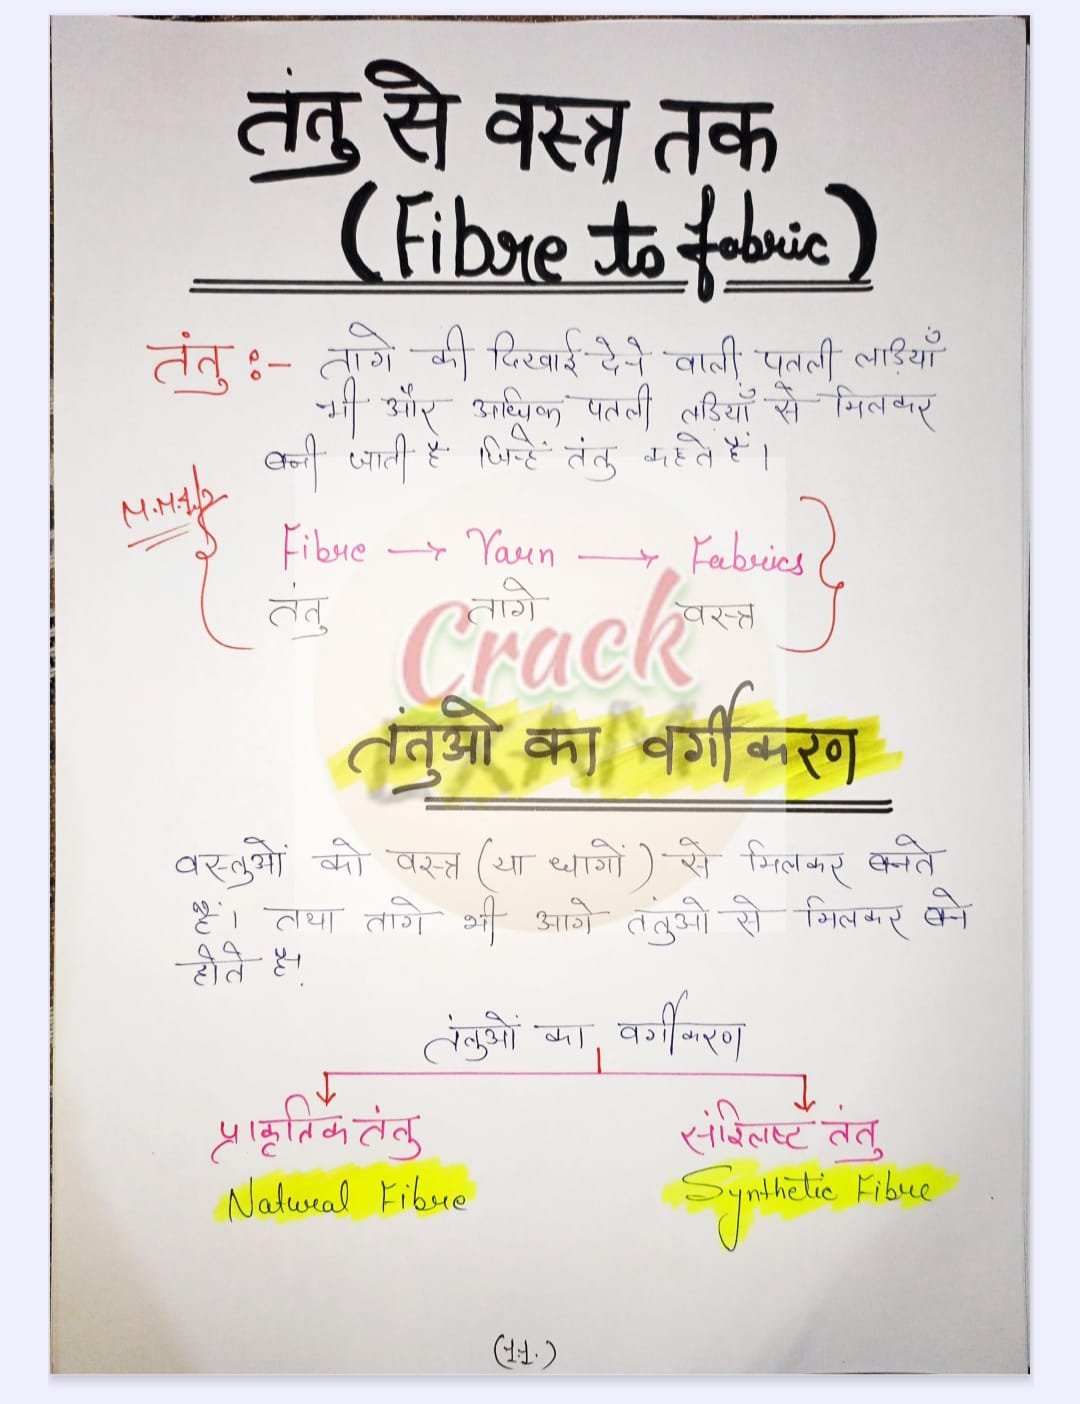 तंतु से वस्त्र तक
(Fibre to fabric)
तंतु :- तागे की दिखाई देने वाली पतली लाड़ियाँ
भी और अधिक पतली लड़ियाँ से मिलकर
बनी जाती है जिन्हें तंतु कहते हैं।
Fibre → Yarn → Fabrics
तंतु तागे वस्त्र
Crack
तंतुओ का वर्गीकरण
EXAM
वस्तुओं को वस्त्र (या धागों) से मिलकर बनते
हैं। तथा तागे भी आगे तंतुओ से मिलकर बने
होते है।
तंतुओं का वर्गीकरण
प्राकृतिक तंतु संश्लिष्ट तंतु
Natural Fibre Synthetic Fibre
(11.)